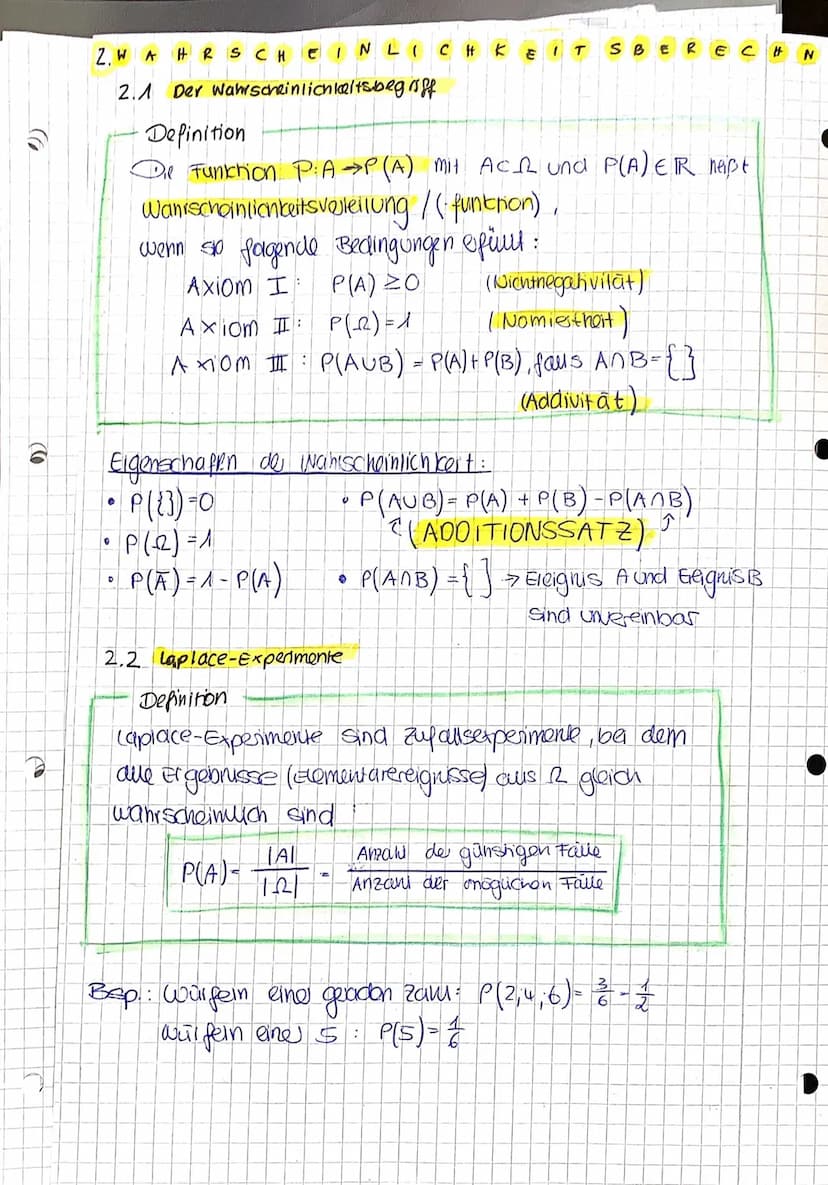 2. WAHRSCHEINLICHKEITSBERECHN
2.1 Der Wahrscheinlichkeitsbegriff
Definition
Die Funktion P: A → P(A) mit A⊂Ω und P(A) ∈ ℝ heißt
Wahrscheinlichkeitsverteilung / (-funktion),
wenn so folgende Bedingungen erfüllt:
Axiom I: P(A) ≥ 0 (Nichtnegativität)
Axiom II: P(Ω) = 1 (Nomiertheit)
Axiom III: P(A∪B) = P(A) + P(B), falls A∩B = { }
(Addivität)
Eigenschaften der Wahrscheinlichkeit:
• P({}) = 0 • P(A∪B) = P(A) + P(B) - P(A∩B)
• P(Ω) = 1 (ADDITIONSSATZ)
• P(Ā) = 1 - P(A) • P(A∩B) = { } → Ereignis A und Ereignis B
sind unvereinbar
2.2 Laplace-Experimente
Definition
Laplace-Experimente sind Zufallsexperimente, bei dem
alle Ergebnisse (Elementarereignisse) aus Ω gleich
wahrscheinlich sind
P(A) = |A| / |Ω| = Anzahl der günstigen Fälle / Anzahl der möglichen Fälle
Bsp.: Würfeln einer geraden Zahl: P(2;4;6) = 3/6 - 1/2
Würfeln einer 5: P(5) = 1/6